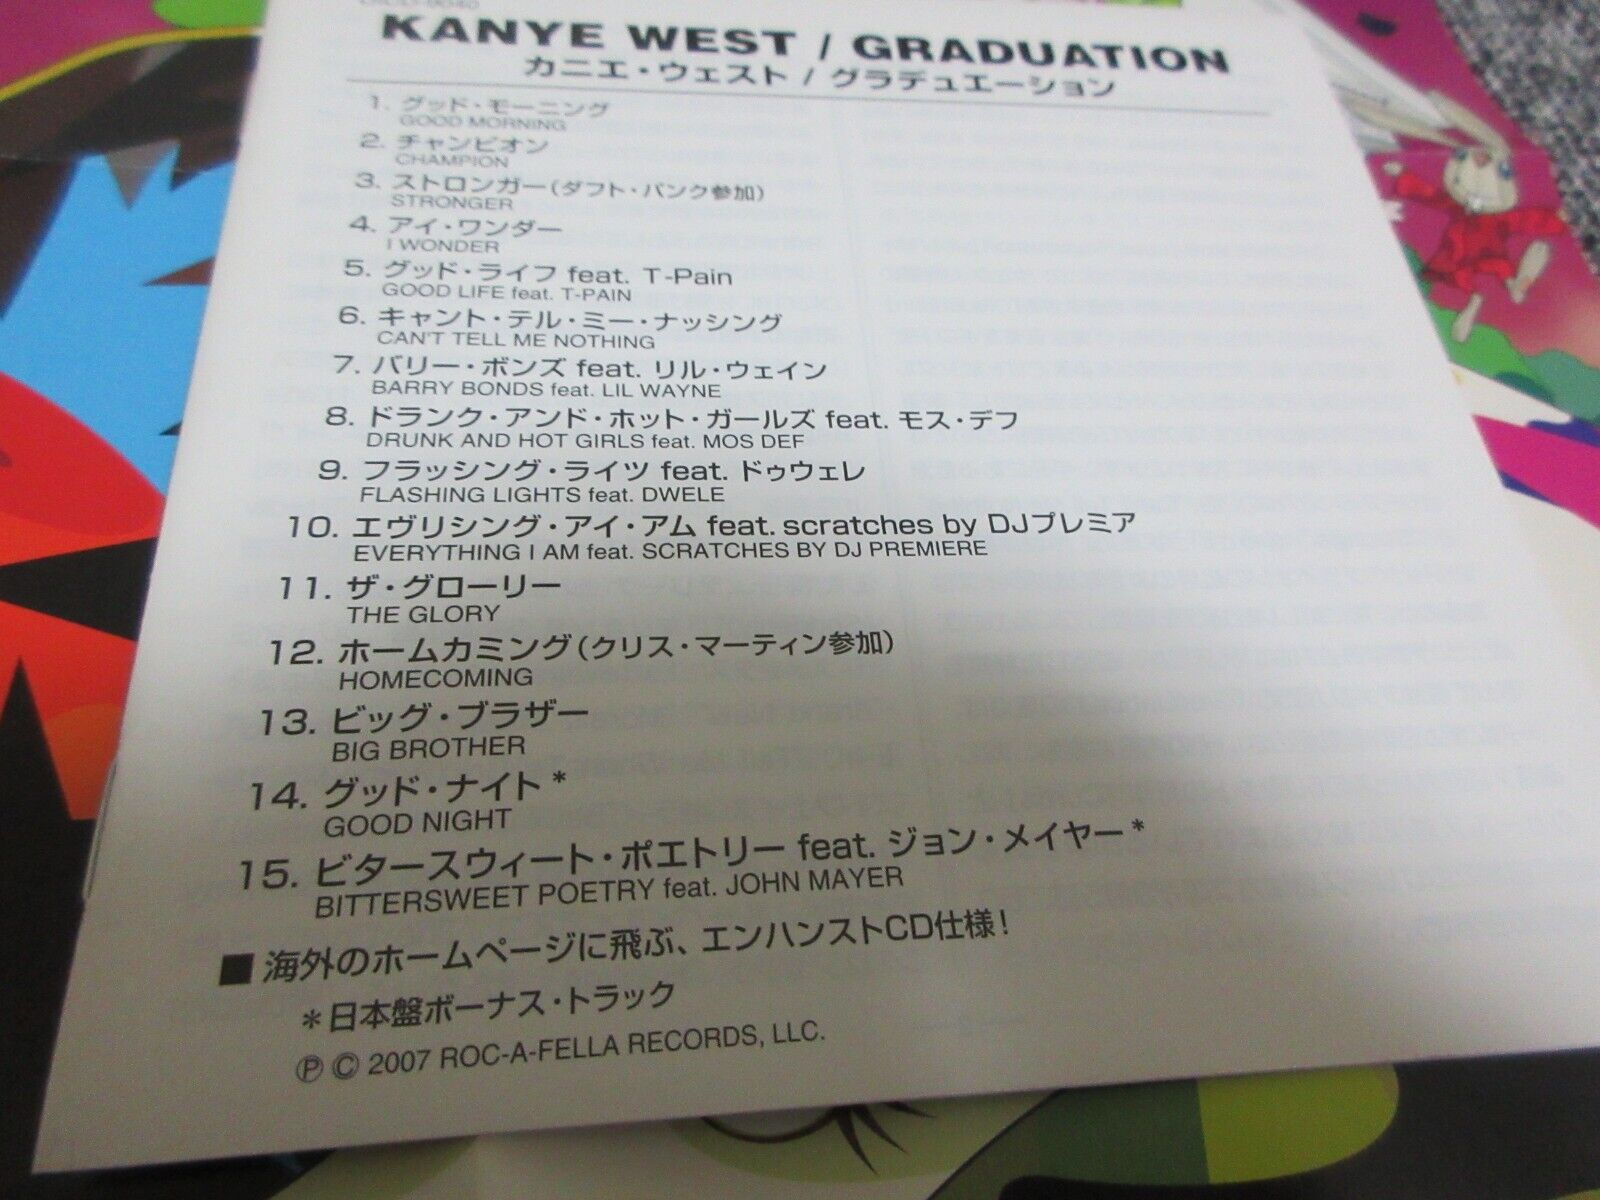 KANYE WEST / GRADUATION
カニエ・ウェスト / グラデュエーション
1. グッド・モーニング
GOOD MORNING
2. チャンピオン
CHAMPION
3. ストロンガー(ダフト・パンク参加)
STRONGER
4. アイ・ワンダー
I WONDER
5. グッド・ライフ feat. T-Pain
GOOD LIFE feat. T-PAIN
6. キャント・テル・ミー・ナッシング
CAN'T TELL ME NOTHING
7. バリー・ボンズ feat. リル・ウェイン
BARRY BONDS feat. LIL WAYNE
8. ドランク・アンド・ホット・ガールズ feat. モス・デフ
DRUNK AND HOT GIRLS feat. MOS DEF
9. フラッシング・ライツ feat. ドゥウェレ
FLASHING LIGHTS feat. DWELE
10. エヴリシング・アイ・アム feat. scratches by DJプレミア
EVERYTHING I AM feat. SCRATCHES BY DJ PREMIERE
11. ザ・グローリー
THE GLORY
12. ホームカミング(クリス・マーティン参加)
HOMECOMING
13. ビッグ・ブラザー
BIG BROTHER
14. グッド・ナイト*
GOOD NIGHT
15. ビタースウィート・ポエトリー feat. ジョン・メイヤー*
BITTERSWEET POETRY feat. JOHN MAYER
■ 海外のホームページに飛ぶ、エンハンストCD仕様!
*日本盤ボーナス・トラック
℗ © 2007 ROC-A-FELLA RECORDS, LLC.